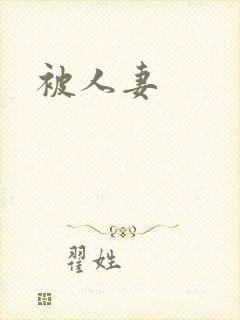 被人妻
翟姓